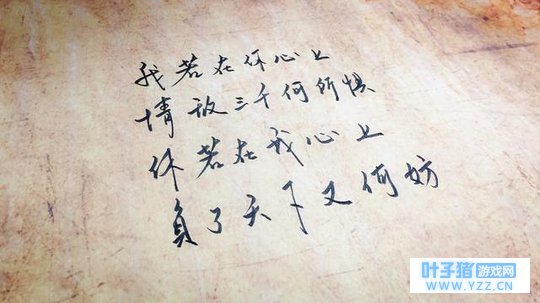 我若在你心上
情敌三千何所惧
你若在我心上
负了天下又何妨
叶子猪游戏网
WWW.YZZ.CN